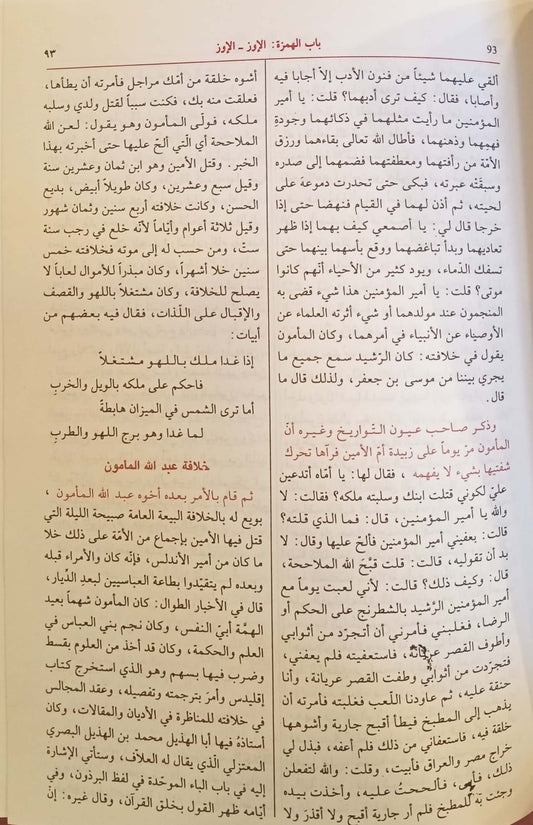 93
باب الهمزة: الإوز - الإوز
٩٣
ألقي عليهما شيئاً من فنون الأدب إلاّ أجابا فيه
وأصابا، فقال: كيف ترى أدبهما؟ قلت: يا أمير
المؤمنين ما رأيت مثلهما في ذكائهما وجودة
فهمهما وذهنهما، فأطال الله تعالى بقاءهما ورزق
الأمّة من رأفتهما ومعطفتهما فضمهما إلى صدره
وسبقتْه عبرته، فبكى حتى تحدرت دموعهُ على
لحيته، ثم أذن لهما في القيام فنهضا حتى إذا
خرجا قال لي: يا أصمعي كيف بهما إذا ظهر
تعاديهما وبدأ تباغضهما ووقع بأسهما بينهما حتى
تسفك الدّماء، ويود كثير من الأحياء أنّهم كانوا
موتى؟ قلت: يا أمير المؤمنين هذا شيء قضى به
المنجمون عند مولدهما أو شيء أثرته العلماء عن
الأوصياء عن الأنبياء في أمرهما، وكان المأمون
يقول في خلافته: كان الرّشيد سمع جميع ما
يجري بيننا من موسى بن جعفر، ولذلك قال ما
قال.
وذكر صاحب عيون التّواريخ وغيره أنّ
المأمون مرّ يوماً على زبيدة أمّ الأمين فرآها تحرك
شفتيها بشيء لا يفهمه، فقال لها: يا أمّاه أتدعين
عليّ لكوني قتلت ابنك وسلبته ملكه؟ فقالت: لا
والله يا أمير المؤمنين، قال: فما الذي قلته؟
قالت: يعفيني أمير المؤمنين فألحّ عليها وقال: لا
بد أن تقوليه، قالت: قلت قبّحَ الله الملاححة،
قال: وكيف ذلك؟ قالت: لأني لعبت يوماً مع
أمير المؤمنين الرّشيد بالشطرنج على الحكم أو
الرضا، فغلبني فأمرني أن أتجرّد من أثوابي
وأطوف القصر عريانة، فاستعفيته فلم يعفني،
فتجرّدت من أثوابي وطفت القصر عريانة، وأنا
حنقة عليه، ثم عاودنا اللعب فغلبته فأمرته أن
يذهب إلى المطبخ فيطأ أقبح جارية وأشوهها
خلقة فيه، فاستعفاني من ذلك فلم أعفه، فبذل لي
خراج مصر والعراق فأبيت، وقلت: والله لتفعلن
ذلك، فأبى فألححتُ عليه، وأخذت بيده
وجئت به للمطبخ فلم أر جارية أقبح ولا أقذرَ ولا
أشوه خلقة من أمّك مراجل فأمرته أن يطأها،
فعلقت منه بك، فكنت سبباً لقتل ولدي وسلبه
ملكه، فولّى المأمون وهو يقول: لعن الله
الملاححة أي الّتي ألحّ عليها حتى أخبرته بهذا
الخبر. وقتل الأمين وهو ابن ثمان وعشرين سنة
وقيل سبع وعشرين، وكان طويلاً أبيض، بديع
الحسن، وكانت خلافته أربع سنين وثمان شهور
وقيل ثلاثة أعوام وأيّاماً لأنّه خلع في رجب سنة
ستّ، ومن حسب له إلى موته فخلافته خمس
سنين خلا أشهراً، وكان مبذراً للأموال لعاباً لا
يصلح للخلافة، وكان مشتغلاً باللهو والقصف
والإقبال على اللّذات، فقال فيه بعضهم من
أبيات:
إذا غدا ملك باللهو مشتغلاً
فاحكم على ملكه بالويل والخربِ
أما ترى الشمس في الميزان هابطةً
لما غدا وهو برج اللهو والطربِ
خلافة عبد الله المأمون
ثم قام بالأمر بعده أخوه عبد الله المأمون،
بويع له بالخلافة البيعة العامة صبيحة الليلة التي
قتل فيها الأمين بإجماع من الأمّة على ذلك خلا
ما كان من أمير الأندلس، فإنّه كان والأمراء قبله
وبعده لم يتقيّدوا بطاعة العباسيين لبعدِ الدِّيار،
قال في الأخبار الطوال: كان المأمون شهماً بعيد
الهمّة أبيّ النفس، وكان نجم بني العباس في
العلم والحكمة، وكان قد أخذ من العلوم بقسط
وضرب فيها بسهم وهو الذي استخرج كتاب
إقليدس وأمرَ بترجمته وتفصيله، وعقد المجالس
في خلافته للمناظرة في الأديان والمقالات، وكان
أستاذهُ فيها أبا الهذيل محمد بن الهذيل البصري
المعتزلي الّذي يقال له العلاّف، وستأتي الإشارة
إليه في باب الباء الموحّدة في لفظ البرذون، وفي
أيّامه ظهر القول بخلق القرآن، وقال غيره: إنّ